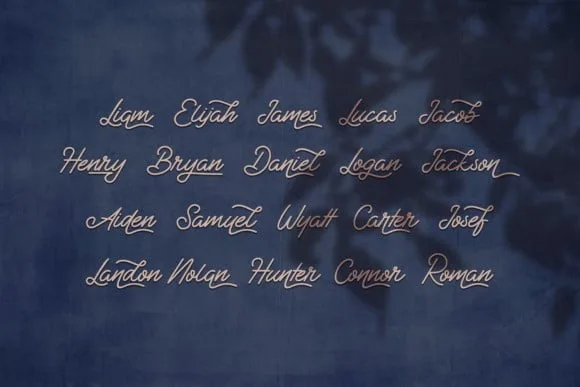 Liam Elijah James Lucas Jacob
Henry Bryan Daniel Logan Jackson
Aiden Samuel Wyatt Carter Josef
Landon Nolan Hunter Connor Roman